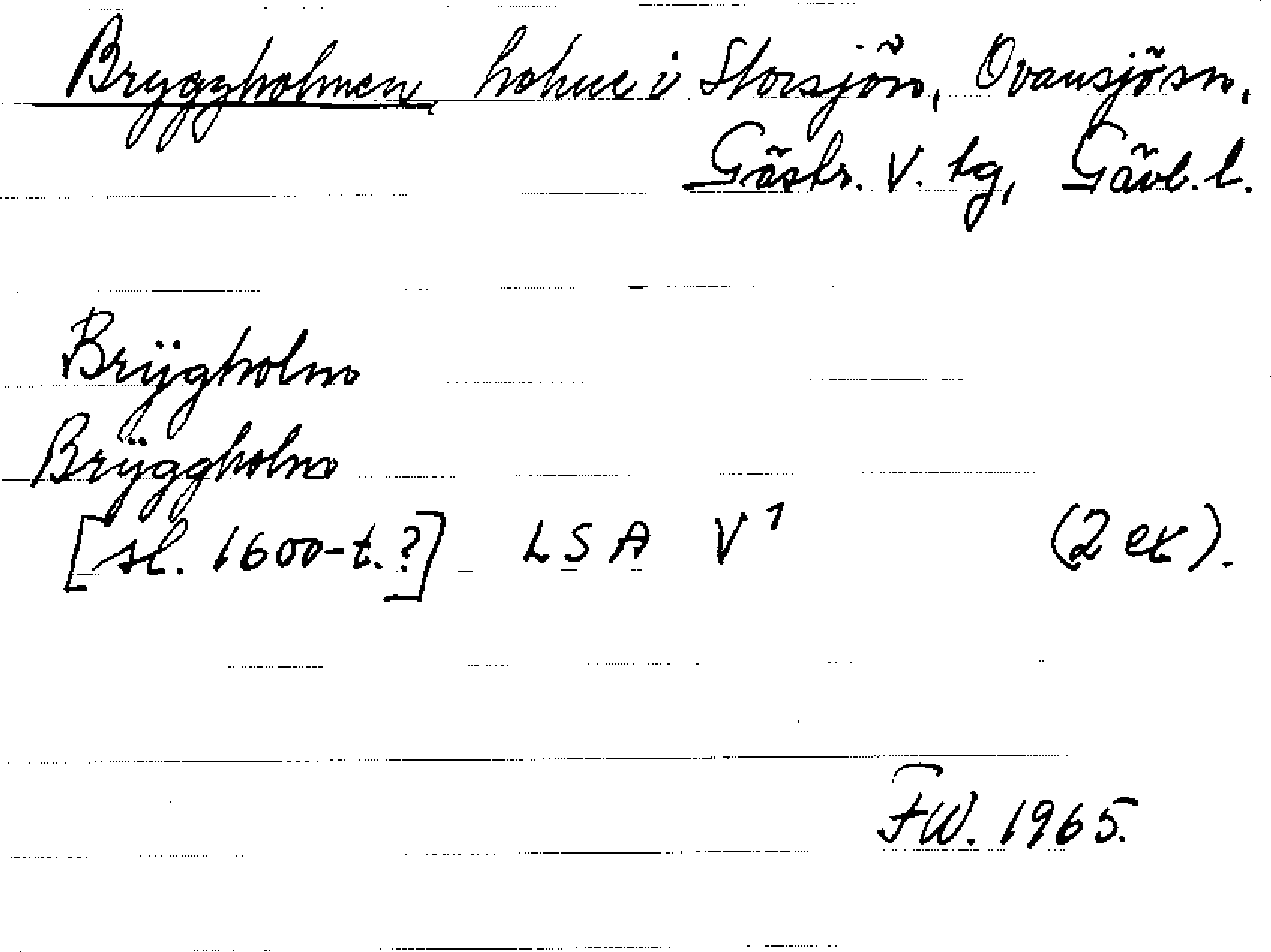 Bryggholmen holme i Storsjön, Ovansjö sn,
Gästr. V. tg, Gävl. l.
Brÿgholm
Brÿggholm
[sl. 1600-t.?] LSA V¹ (2 ex).
FW. 1965.